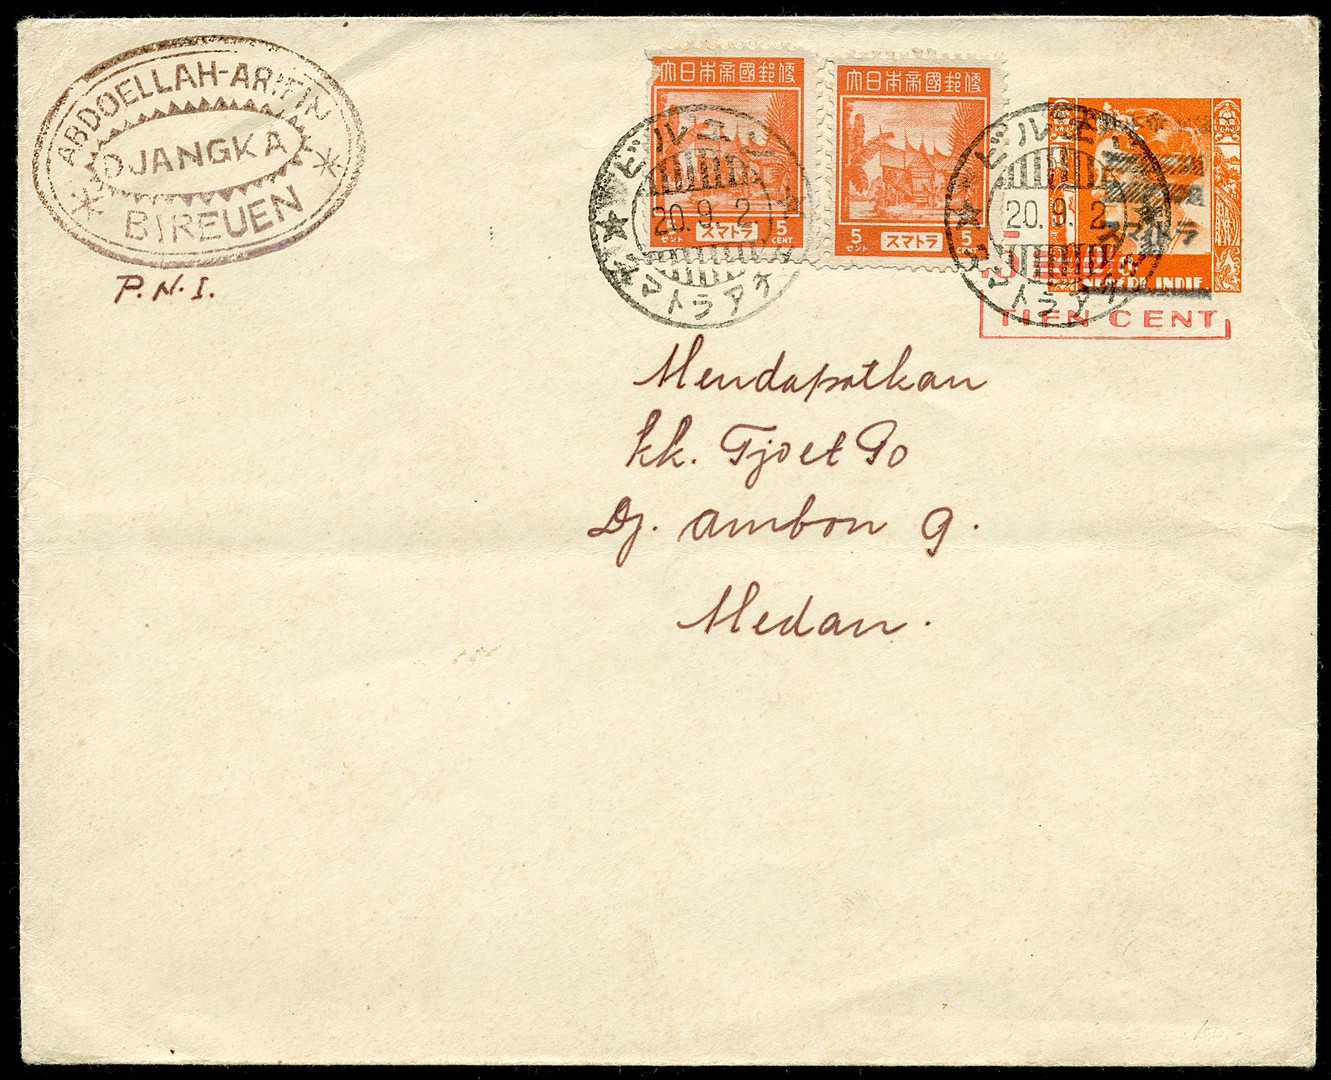 ABDOELLAH-ARIFIN
DJANGKA
BIREUEN
P.N.I.
大日本帝國郵便
5 スマトラ 5
セント CENT
大日本帝國郵便
5 スマトラ 5
セント CENT
ビルエン
20. 9. 2
スマトラアチエ
ビルエン
20. 9. 2
スマトラ
NEDERL. INDIE
TIEN CENT
Mendapatkan
kk. Tjoet Po
Dj. Ambon 9.
Medan.